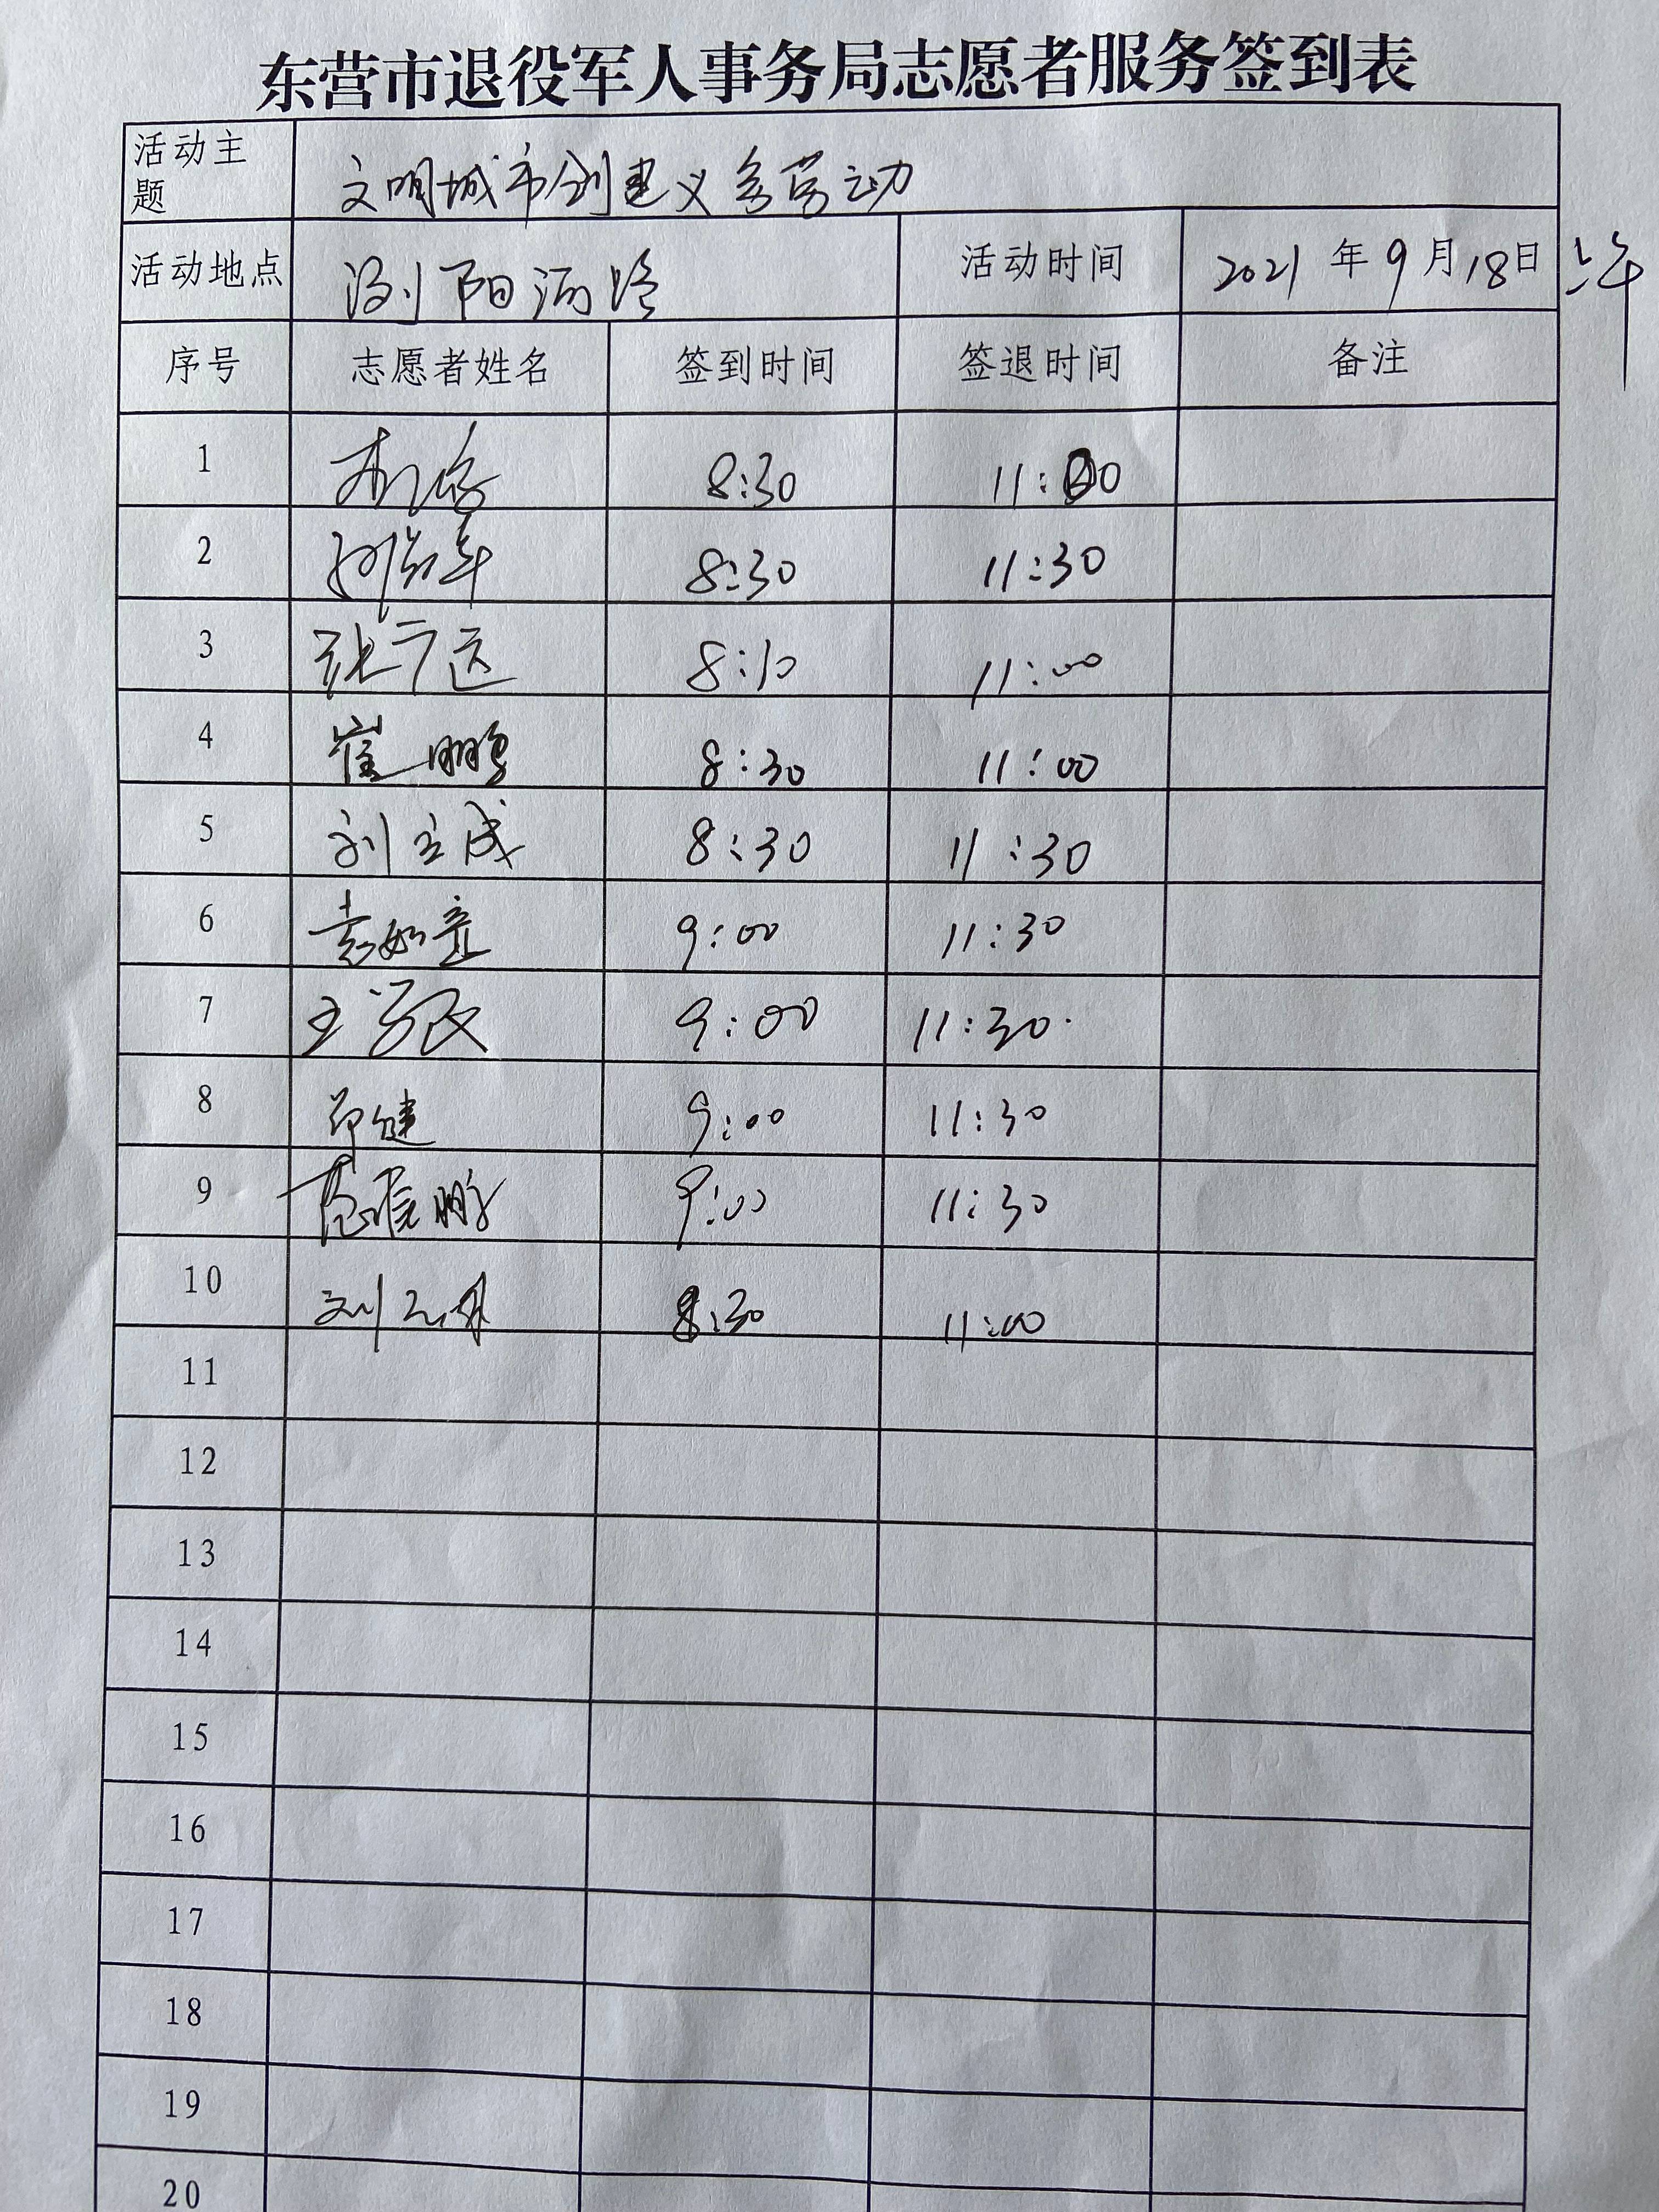 东营市退役军人事务局志愿者服务签到表
活动主题 文明城市创建义务劳动
活动地点 浏阳河路 活动时间 2021年9月18日 上午
序号 志愿者姓名 签到时间 签退时间 备注
1 8:30 11:00
2 8:30 11:30
3 张广远 8:30 11:00
4 崔鹏 8:30 11:00
5 刘立成 8:30 11:30
6 袁如意 9:00 11:30
7 9:00 11:30
8 9:00 11:30
9 9:00 11:30
10 8:30 11:00
11
12
13
14
15
16
17
18
19
20